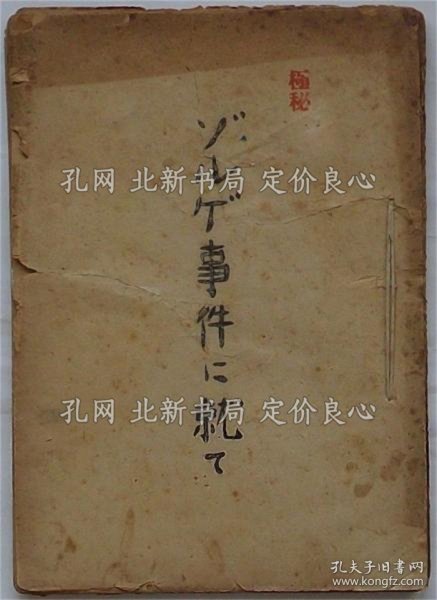 極秘
ゾルゲ事件に就て
孔网 北新书局 定价良心
孔网 北新书局 定价良心
孔夫子旧书网
www.kongfz.com